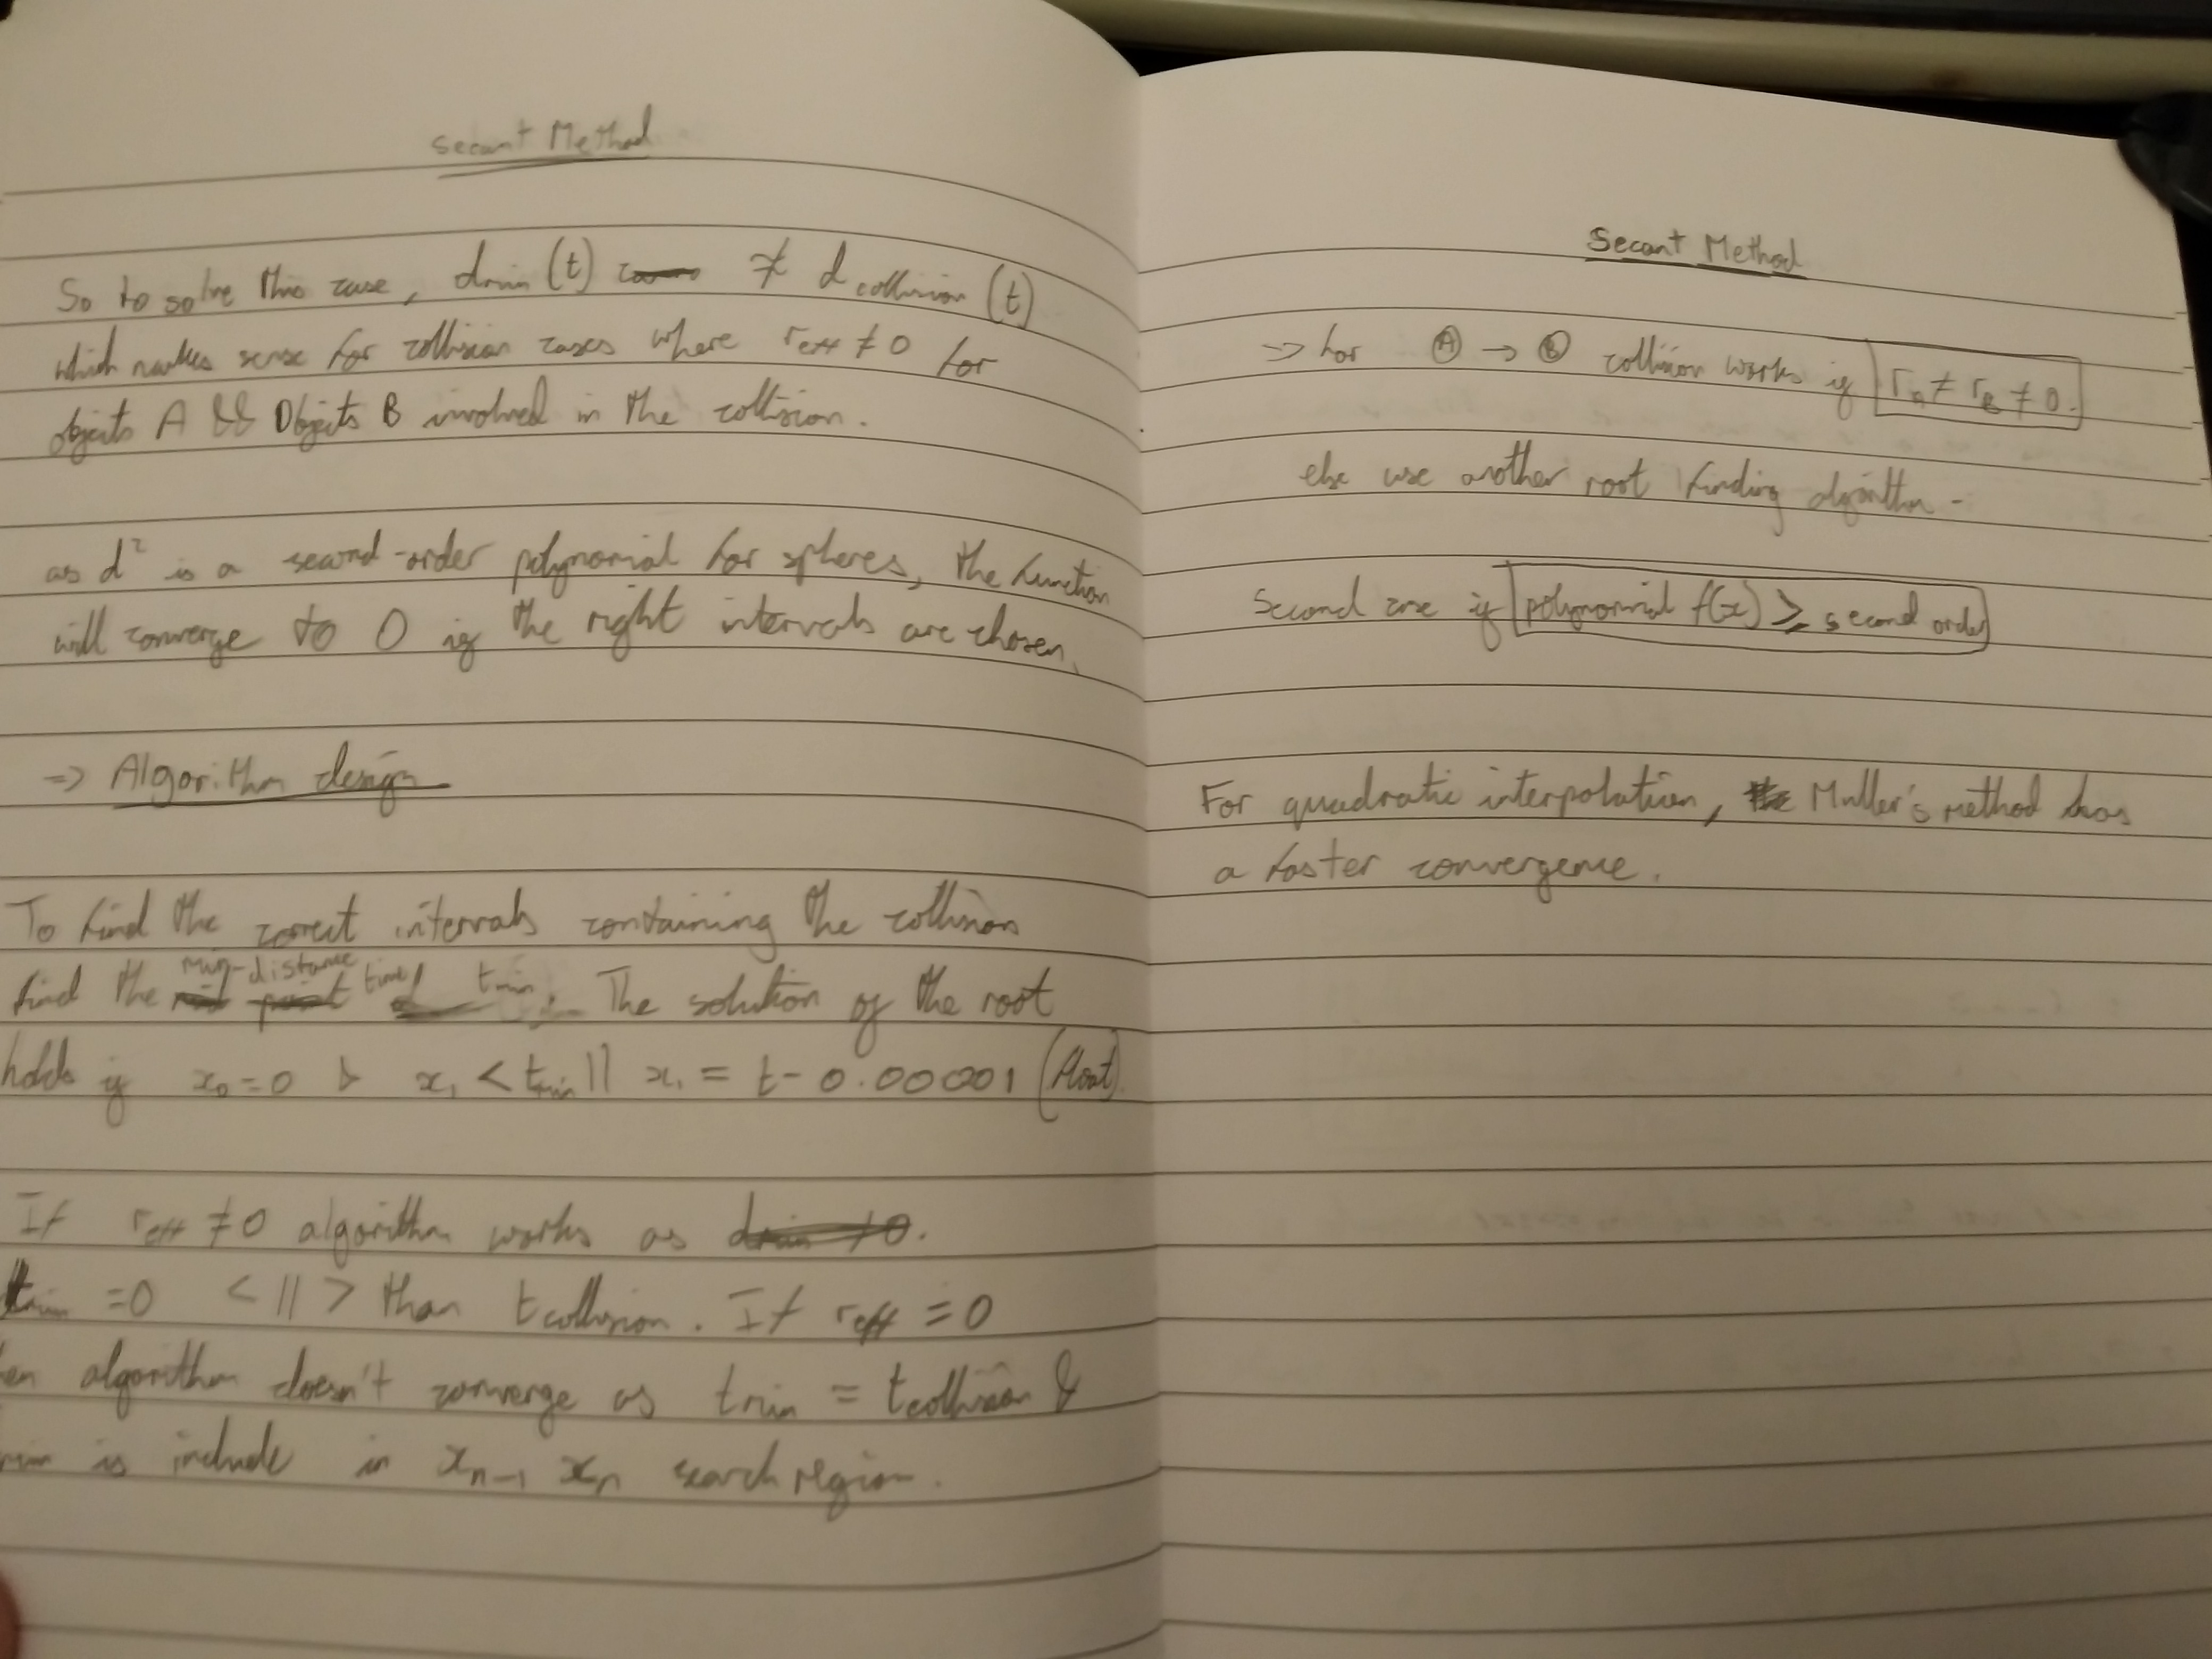 Secant Method
So to solve this case, dmin (t) ≠ d collision (t)
which makes sense for collision cases where reff ≠ 0 for
objects A && Objects B involved in the collision.
as d² is a second-order polynomial for spheres, the function
will converge to 0 if the right intervals are chosen.
=> Algorithm design
To find the correct intervals containing the collision
find the min-distance time tmin. The solution of the root
holds if x₀=0 & x₁ < tmin || x₁ = t - 0.00001 (float).
If reff ≠ 0 algorithm works as
tmin =0 < || > than tcollision. If reff = 0
en algorithm doesn't converge as tmin = tcollision &
min is include in xn-1 xn search region.
Secant Method
=> for Ⓐ → Ⓑ collision works if rA ≠ rB ≠ 0.
else use another root finding algorithm -
Second case if polynomial f(x) ⩾ second order
For quadratic interpolation, Muller's method has
a faster convergence.